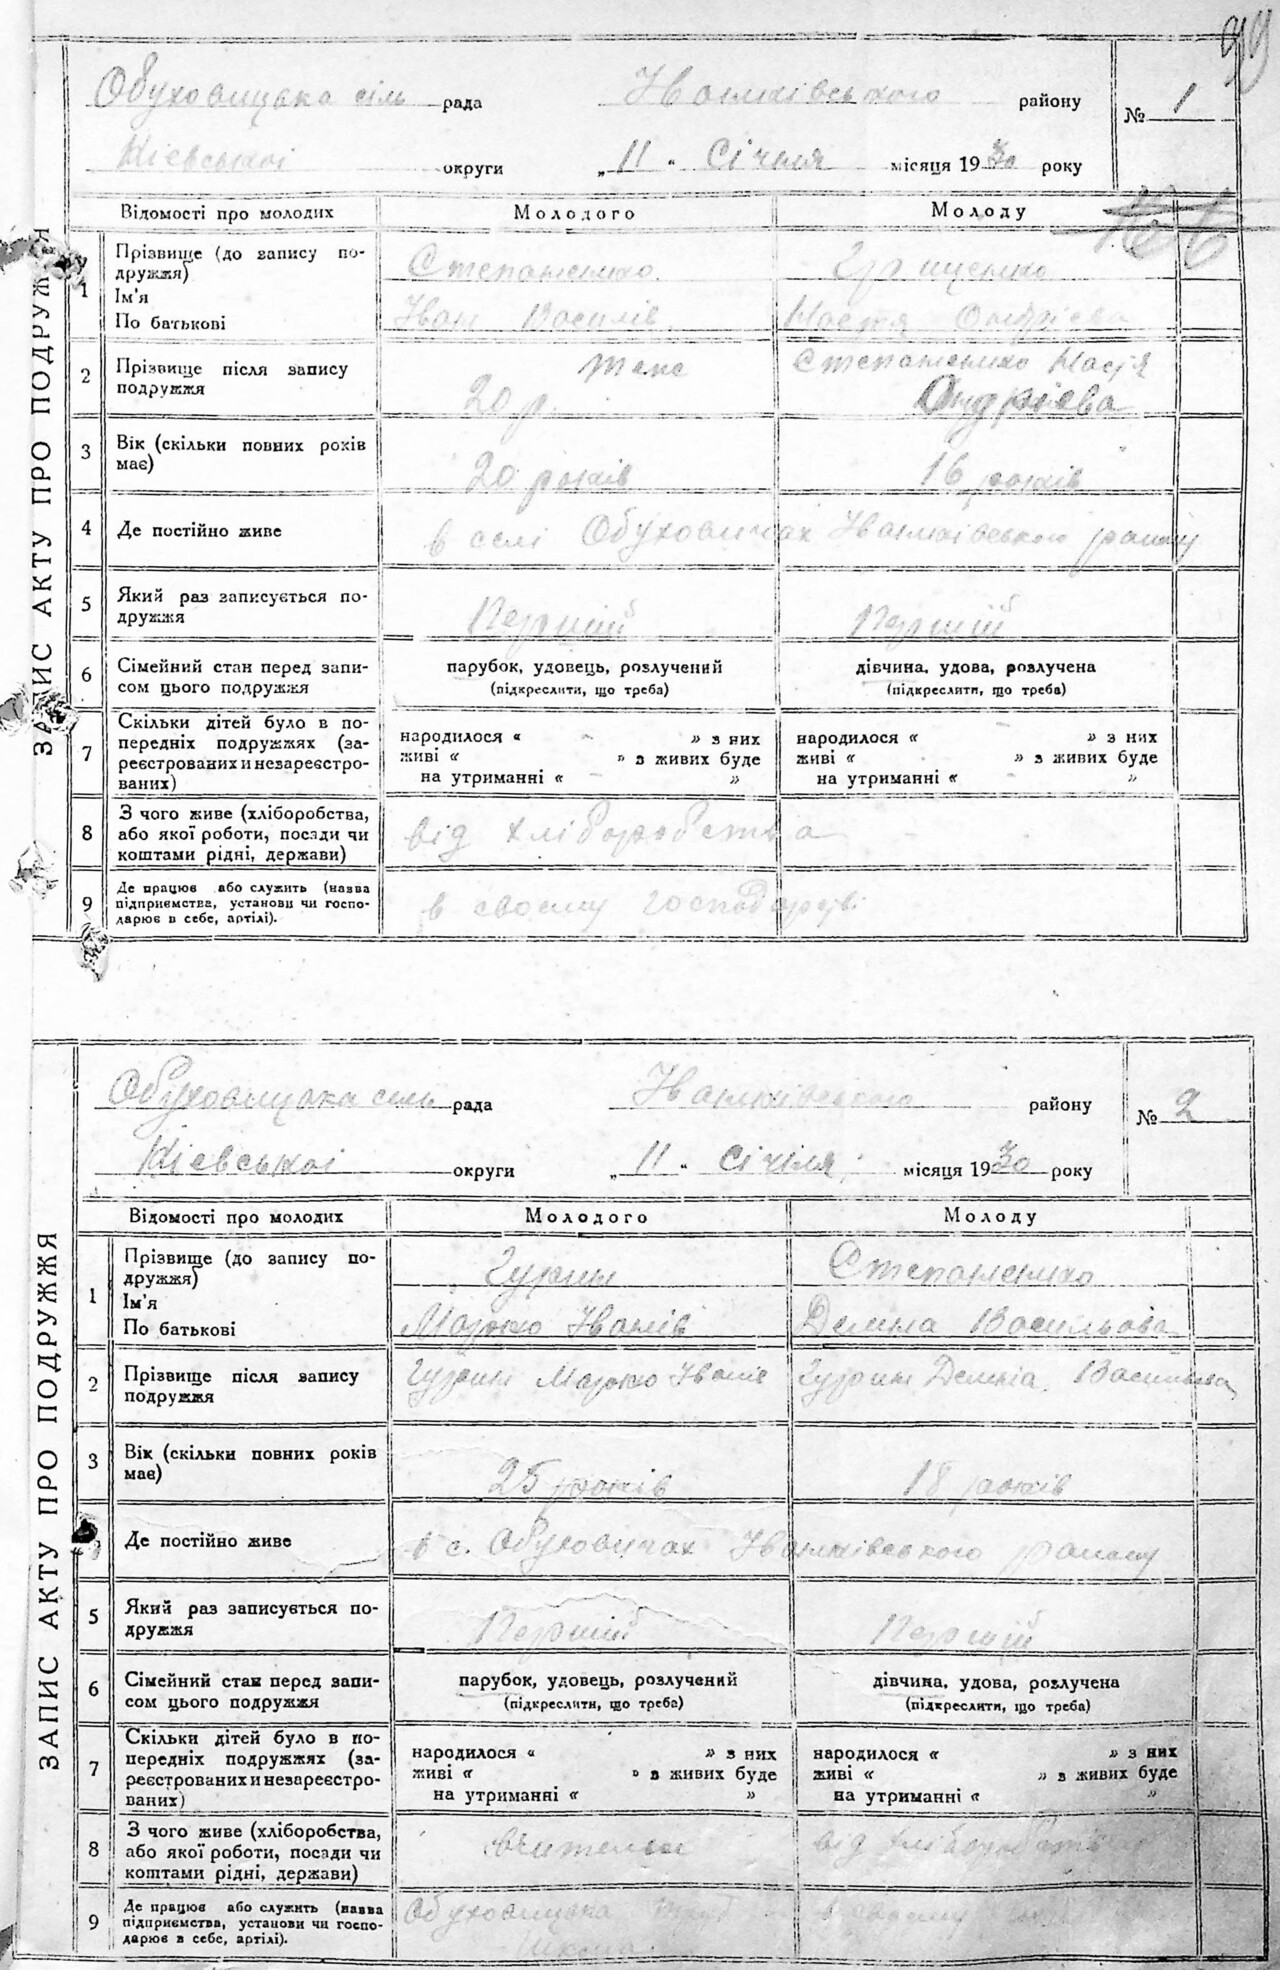 99
ЗАПИС АКТУ ПРО ПОДРУЖЖЯ
Обуховицька сіль рада Іванківського району № 1
Кієвської округи „ 11 " Січіля місяця 1930 року
Відомості про молодих Молодого Молоду
1 Прізвище (до запису по-
дружжя) Степаненко Грищенко
Ім'я
По батькові Іван Василів Настя Ондрієва
2 Прізвище після запису
подружжя теж 20 р. Степаненко Настя
Ондрієва
3 Вік (скільки повних років
має) 20 років 16 років
4 Де постійно живе в селі Обуховичах Іванківського району
5 Який раз записується по-
дружжя Перший Перший
6 Сімейний стан перед запи-
сом цього подружжя
парубок, удовець, розлучений дівчина, удова, розлучена
(підкреслити, що треба) (підкреслити, що треба)
7 Скільки дітей було в по-
передніх подружжях (за-
реєстрованих и незареєстро-
ваних)
народилося « - » з них народилося « - » з них
живі « - » з живих буде живі « » з живих буде
на утриманні « - » на утриманні « »
8 З чого живе (хліборобства,
або якої роботи, посади чи
коштами рідні, держави) від хліборобства
9 Де працює або служить (назва
підприємства, установи чи госпо-
дарює в себе, артілі). в своєму господарстві
ЗАПИС АКТУ ПРО ПОДРУЖЖЯ
Обуховицька сіль рада Іванківського району № 2
Кієвської округи „ 11 " Січіля місяця 1930 року
Відомості про молодих Молодого Молоду
1 Прізвище (до запису по-
дружжя) Гурин Степаненко
Ім'я
По батькові Марко Іванів Васильова
2 Прізвище після запису
подружжя Гурин Марко Іванів Гурин
3 Вік (скільки повних років
має) 25 років 18 років
Де постійно живе в с. Обуховичах Іванківського району
5 Який раз записується по-
дружжя Перший Перший
6 Сімейний стан перед запи-
сом цього подружжя
парубок, удовець, розлучений дівчина, удова, розлучена
(підкреслити, що треба) (підкреслити, що треба)
7 Скільки дітей було в по-
передніх подружжях (за-
реєстрованих и незареєстро-
ваних)
народилося « » з них народилося « » з них
живі « » з живих буде живі « » з живих буде
на утриманні « » на утриманні « »
8 З чого живе (хліборобства,
або якої роботи, посади чи
коштами рідні, держави) вчитель від
9 Де працює або служить (назва
підприємства, установи чи госпо-
дарює в себе, артілі). Обуховицька в своєму
школа